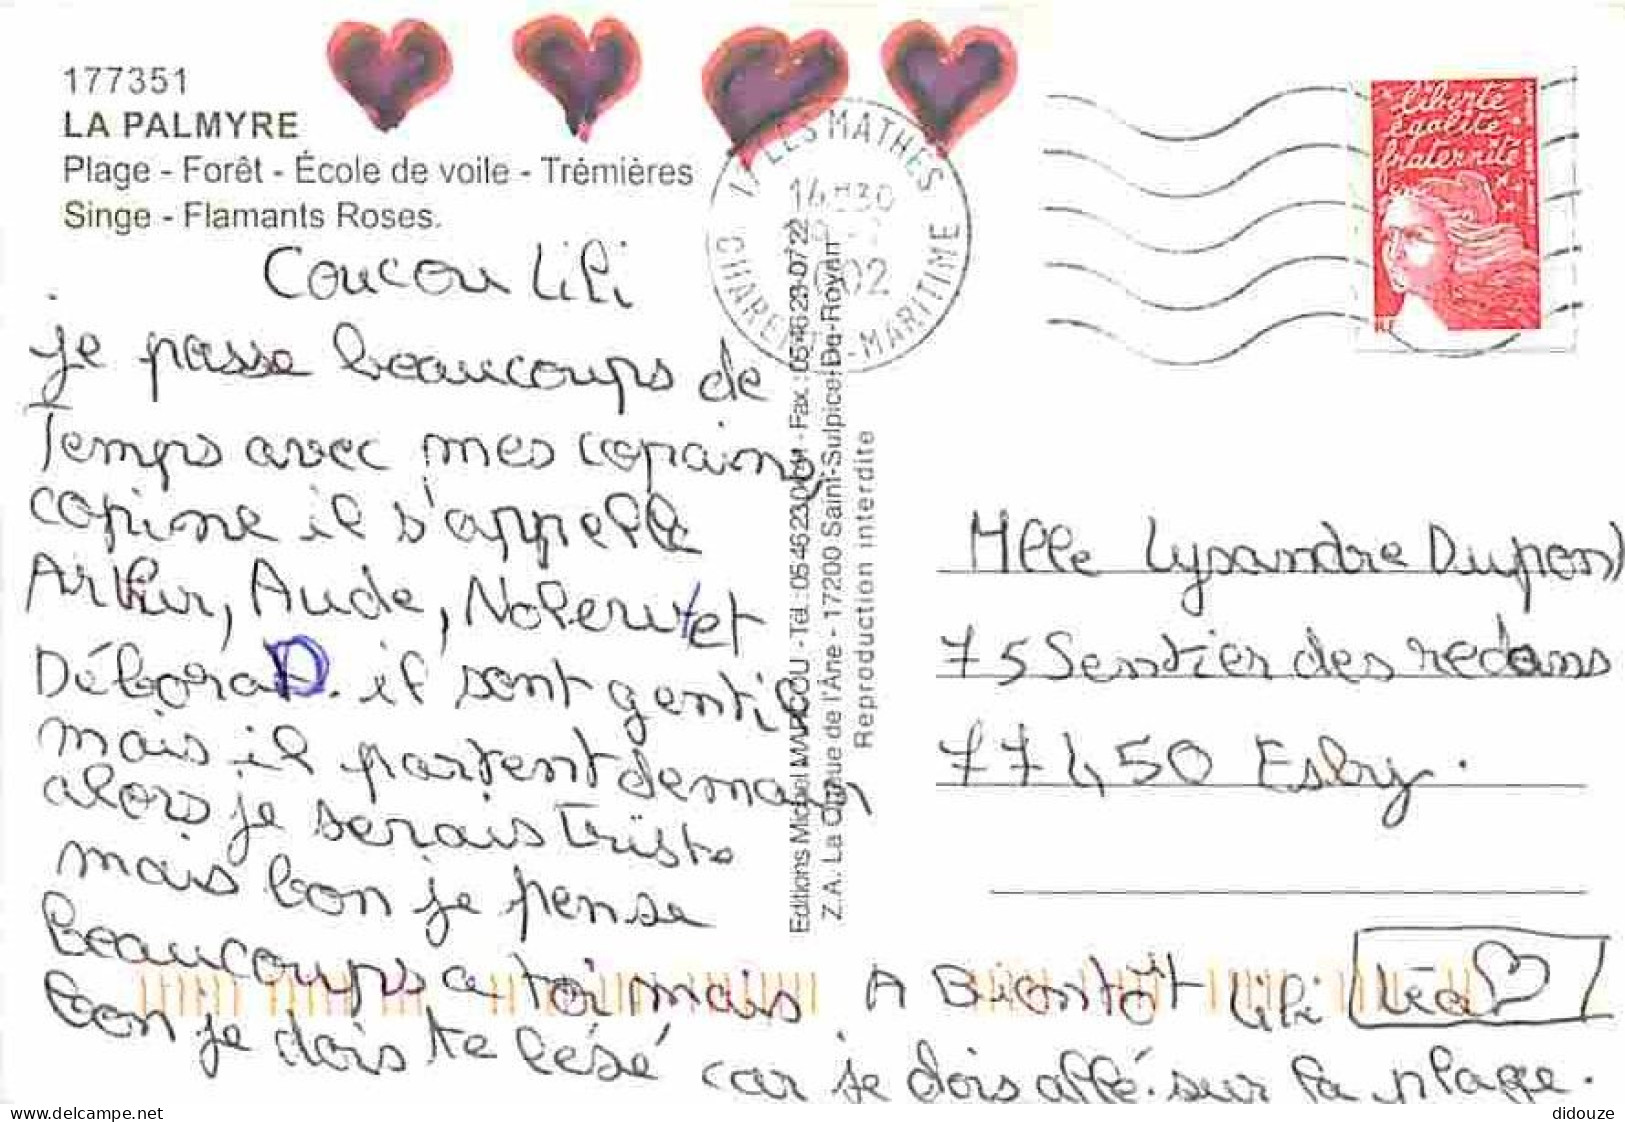 177351
LA PALMYRE
Plage - Forêt - École de voile - Trémières
Singe - Flamants Roses.
17 LES MATHES
14H30
CHARENTE-MARITIME
liberté
égalité
fraternité
Coucou lili
je passe beaucoups de
Temps avec mes copains
copine il s'appelle
Arthur, Aude, et
Débora. il sont gentil
mais il partent demain
alors je serais triste
mais bon je pense
beaucoups a toi mais
bon je dois te léssé car je dois allé sur la plage.
A Bientôt lili Léa
Editions Michel MARCOU - Tél. : 05 46 23 - Fax : 05 46 23 07 22
Z.A. La Queue de l'Âne - 17200 Saint-Sulpice De Royan
Reproduction interdite
Mlle Lysandre Dupont
75 Sentier des redans
77450 Esbly.
didouze